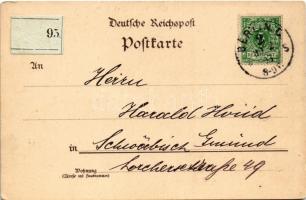 Deutsche Reichspost
Postkarte
95.
An
BERLIN
Herrn
Harald Hoüid
in Schwäbisch Gmünd
Wohnung
(Straße und Hausnummer)
Lorcherstraße 49